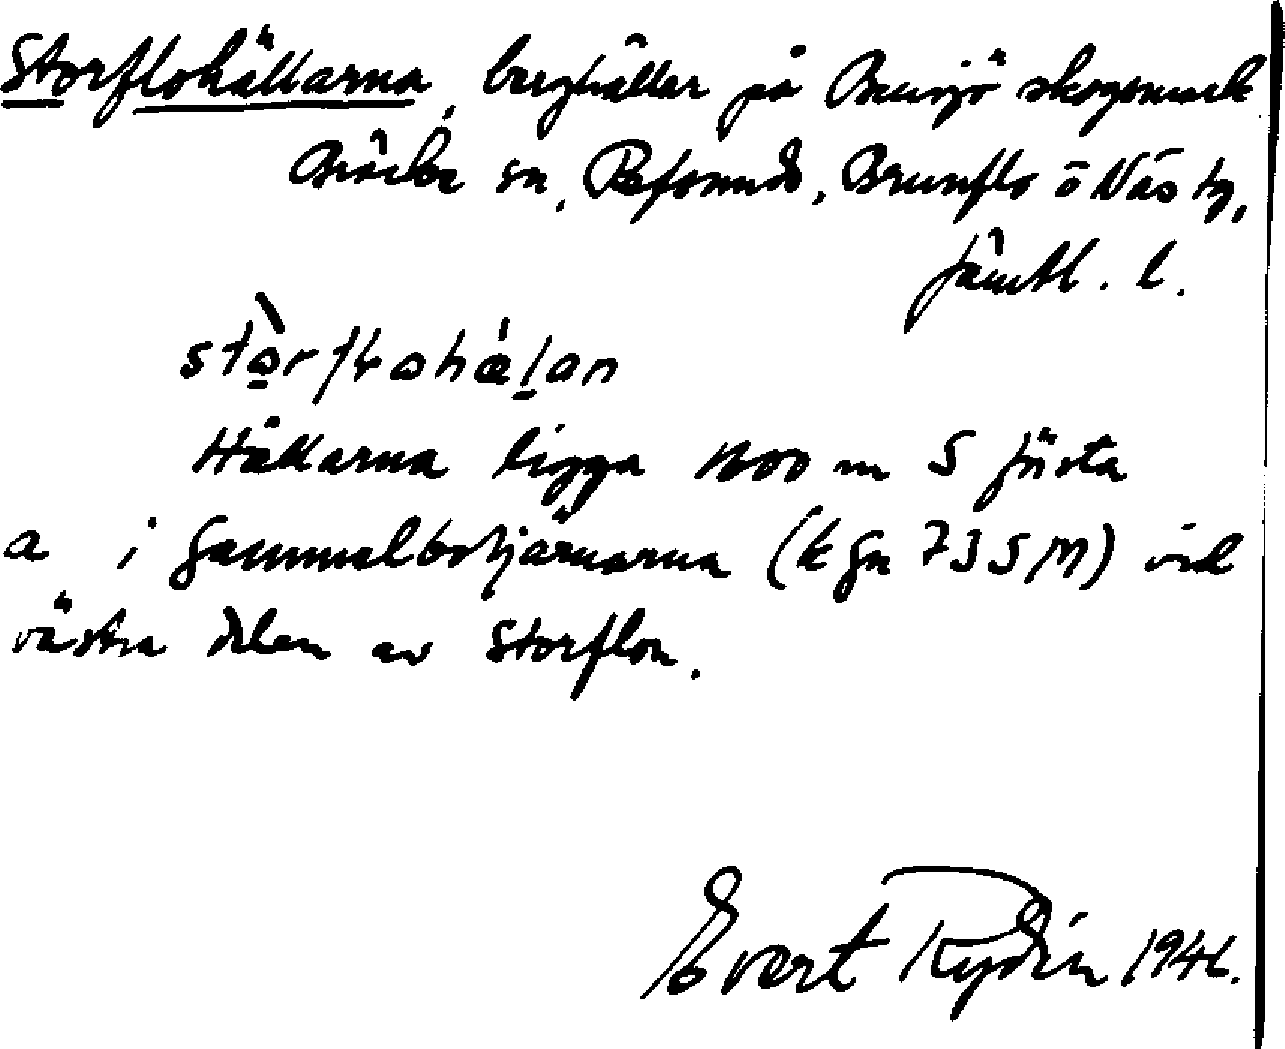 Storflohällarna, berghällar på Bensjö skogsmark
Bräcke sn, Refsunds, Brunflo o Näs tg,
Jämtl. l.
stòrflohælan
Hällarna ligga 1600 m S första
a i Gammelbotjärnarna (k fn 735M) vid
västra delen av Storflon.
Evert Rydén 1946.